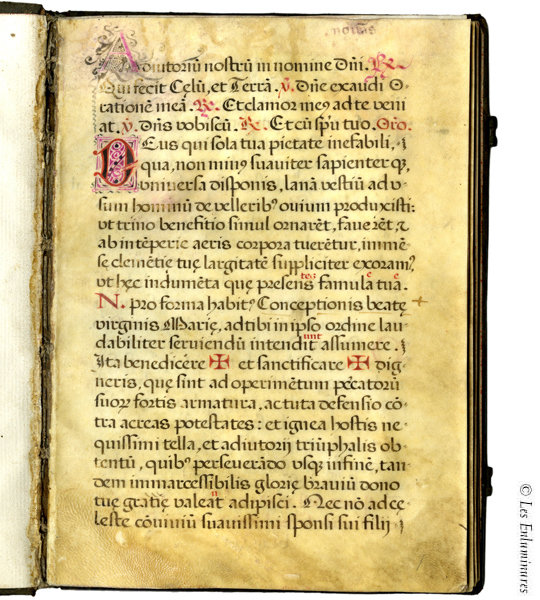 nouitijs
Adiutoriũ nostrũ in nomine Dñi. ℟.
Qui fecit Celũ, et Terrã. ℣. Dñe exaudi O-
rationẽ meã. ℟. Et clamor meꝰ ad te veni
at. ℣. Dñs vobiscũ. ℟. Et cũ spũ tuo. Oro.
DEus qui sola tua pietate inefabili,
qua, non minꝰ suauiter sapienter qꝫ,
vniuersa disponis, lanã vestiũ ad v-
sum hominũ de velleribꝰ ouium produxisti:
vt trino benefitio simul ornarẽt, fauerẽt ⁊
ab intẽperie aeris corpora tuerẽtur, immẽ-
sę clemẽtię tuę largitatẽ suppliciter exoramꝰ,
vt hęc indumẽta quę presens famula tua.
N. pro forma habitꝰ Conceptionis beatę
virginis Marię, ad tibi in ipso ordine lau-
dabiliter seruiendũ intendit assumere.
Ita benedicere ✠ et sanctificare ✠ dig-
neris, quę sint ad operimẽtum pẽcatorũ
suoꝝ fortis armatura, ac tuta defensio cõ-
tra acreas potestates: et ignea hostis ne-
quissimi tella, et adiutorij triũphalis ob-
tentũ, quibꝰ perseuerãdo vsqꝫ in finẽ, tan-
dem immarcessibilis glorię brauiũ dono
tuę gratię valeat adipisci. Nec nõ ad cę-
leste cõuiuiũ suauissimi sponsi sui filij
© Les Enluminures